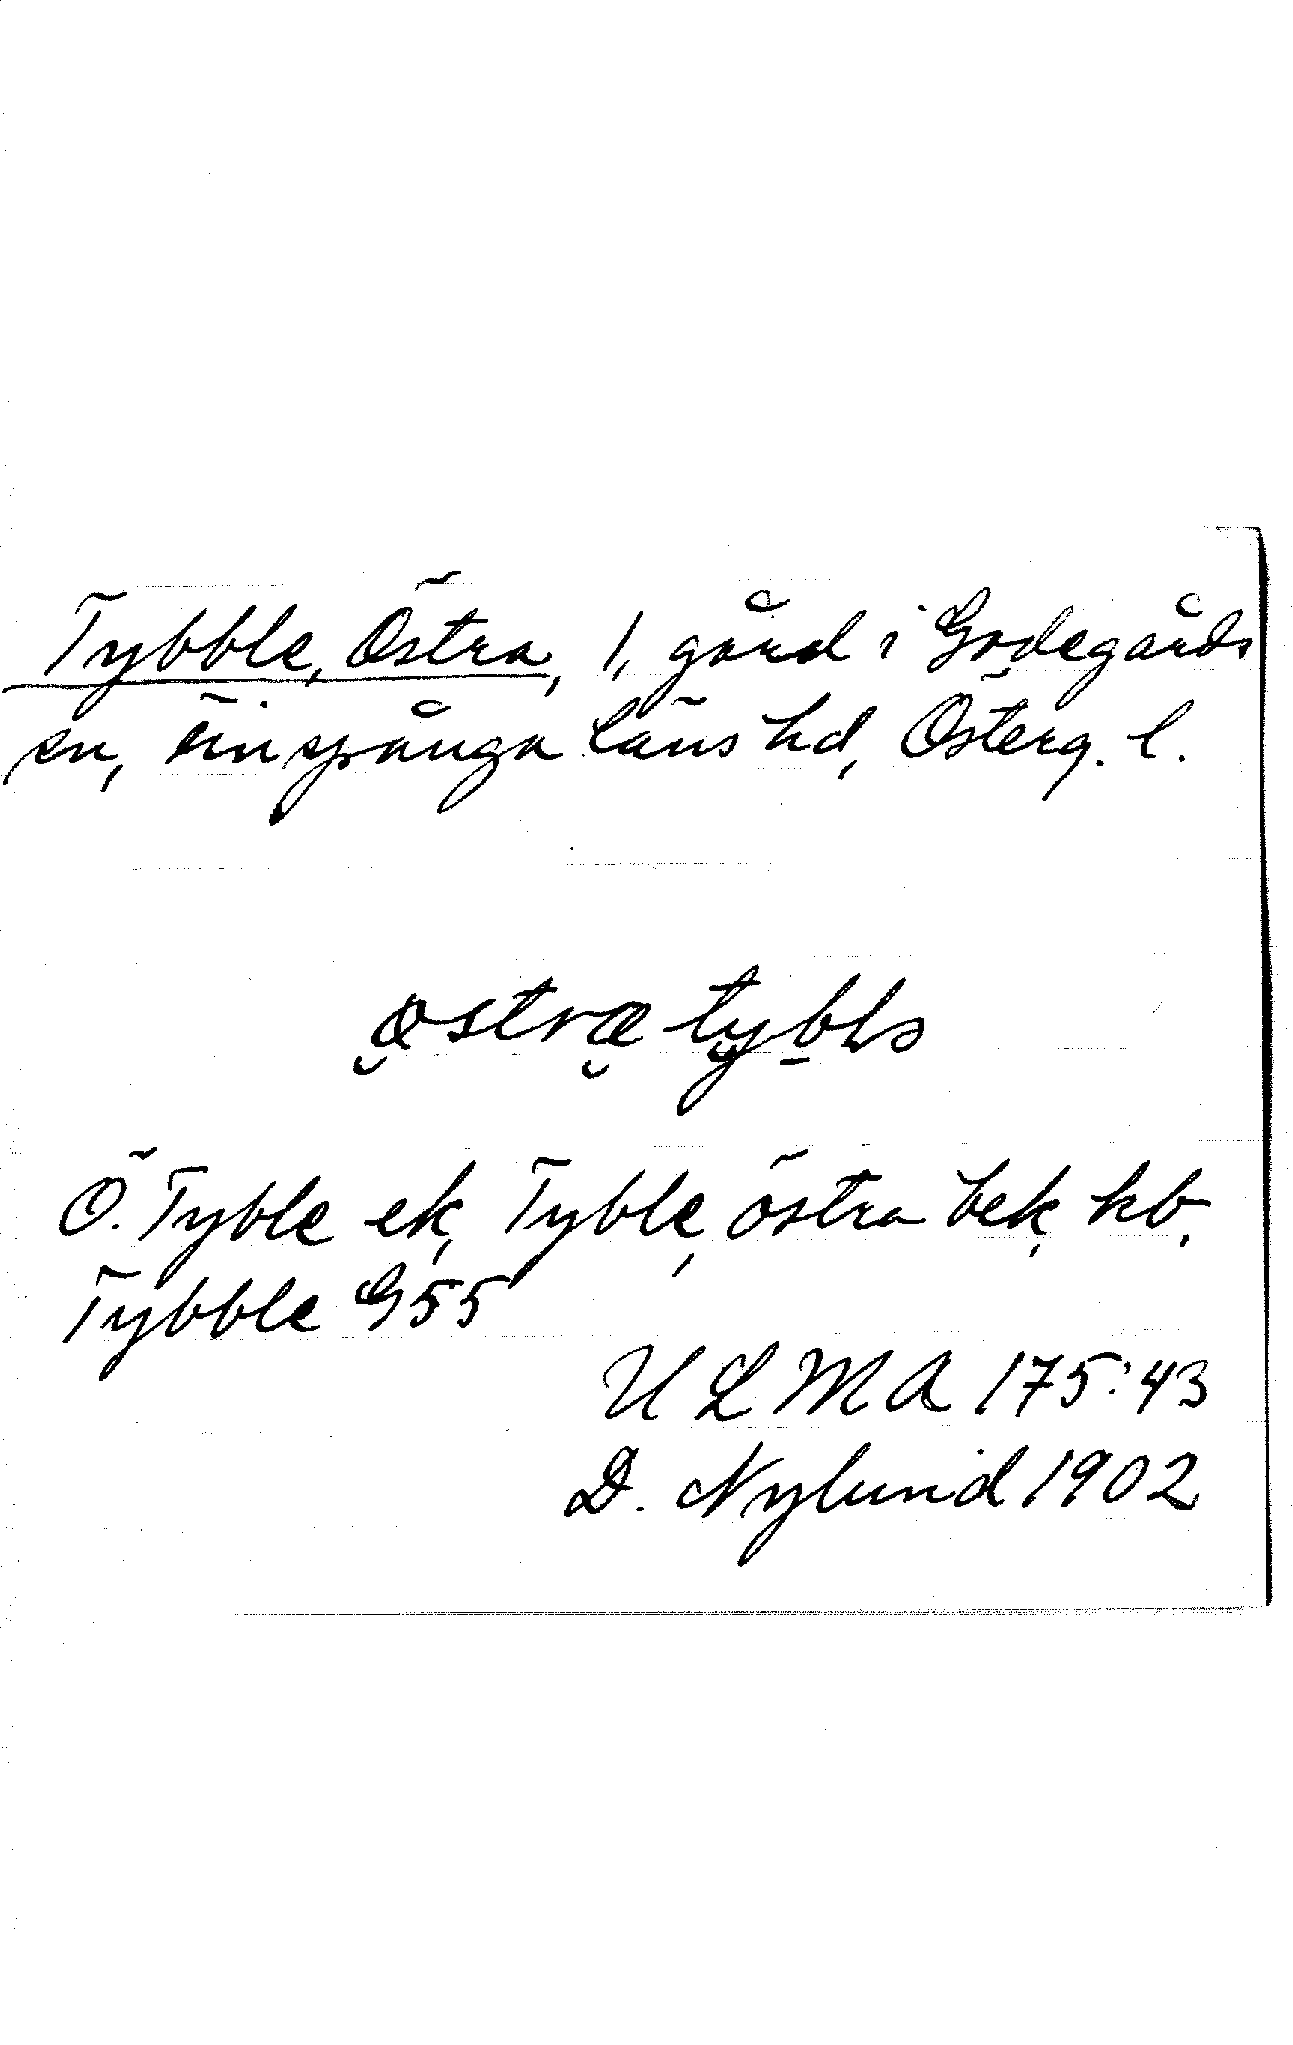 Tybble, Östra, 1, gård i Godegårds
sn, Finspånga läns hd, Österg. l.
østra tybls
Ö. Tyble ek, Tyble, östra bek, kb,
Tybble G55
ULMA 175:43
D. Nylund 1902